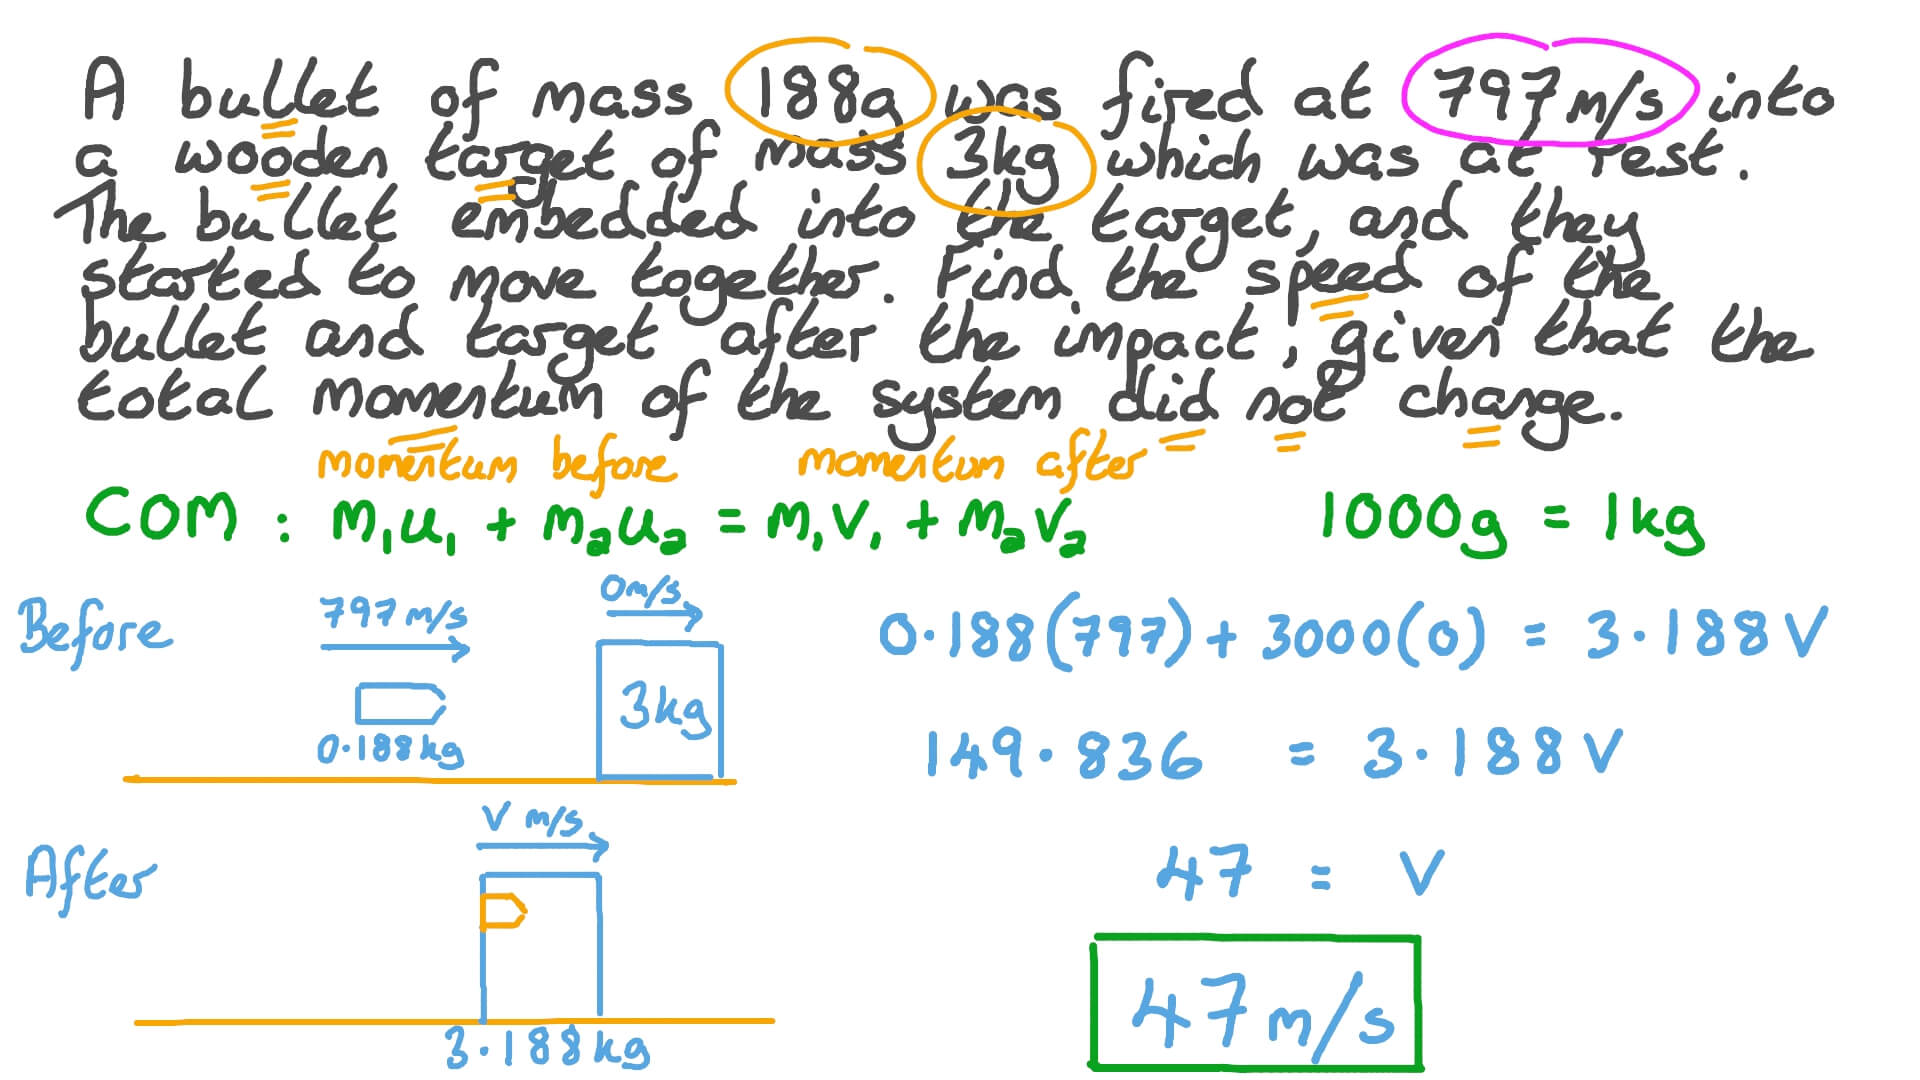 A bullet of mass 188g was fired at 797m/s into
a wooden target of mass 3kg which was at rest.
The bullet embedded into the target, and they
started to move together. Find the speed of the
bullet and target after the impact, given that the
total momentum of the system did not change.
momentum before momentum after
COM : m₁u₁ + m₂u₂ = m₁v₁ + m₂v₂ 1000g = 1kg
Before
797m/s
0m/s
3kg
0.188kg
0.188(797) + 3000(0) = 3.188V
149.836 = 3.188V
After
V m/s
3.188kg
47 = V
47m/s